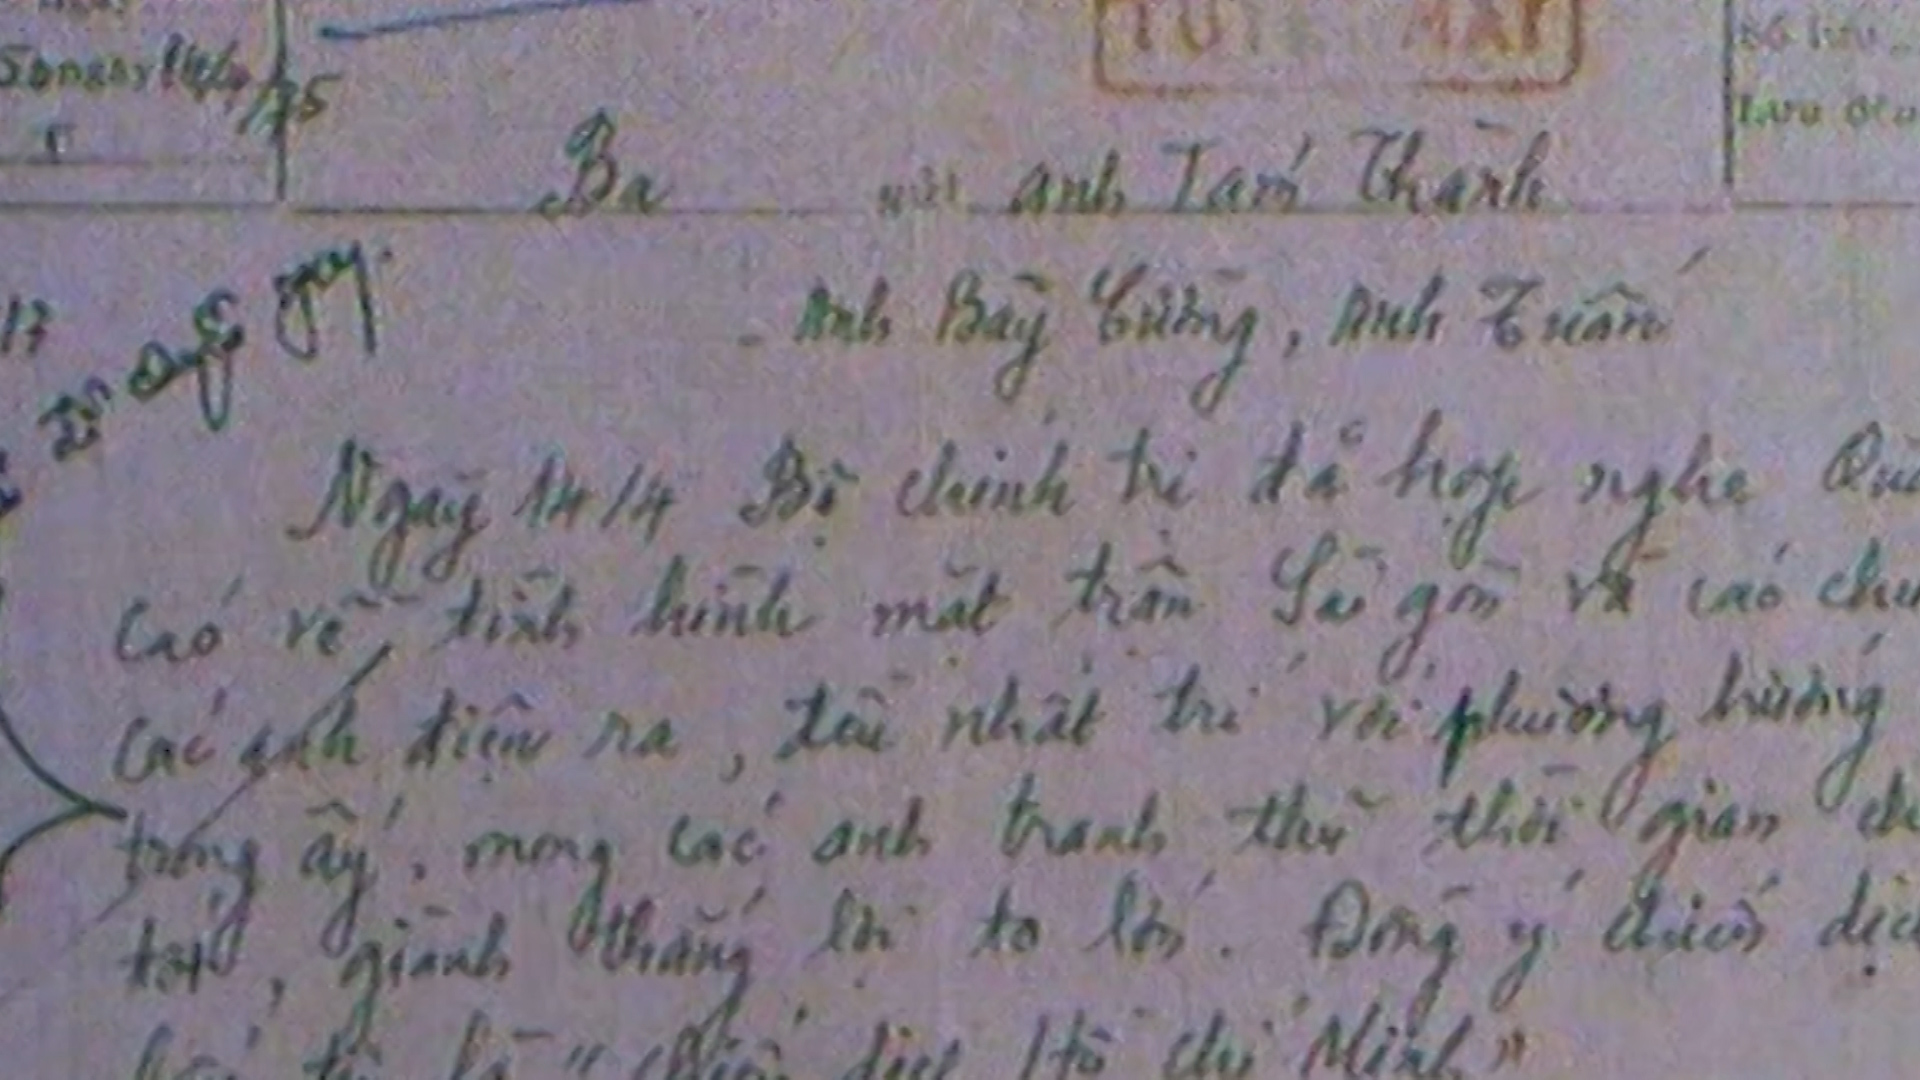 TUYỆT MẬT
Số lưu
14/4/75
Ba anh Tám Thành
- Anh Bảy Cường, Anh Tuấn
17
Ngày 14/4 Bộ chính trị đã họp nghe Quâ
cáo về tình hình mặt trận Sài gòn và các chủ
các anh điện ra, đều nhất trí với phương hướng
trong ấy, mong các anh tranh thủ thời gian ch
tốt, giành thắng lợi to lớn. Đồng ý chiến dịc
"Chiến dịch Hồ chí Minh"